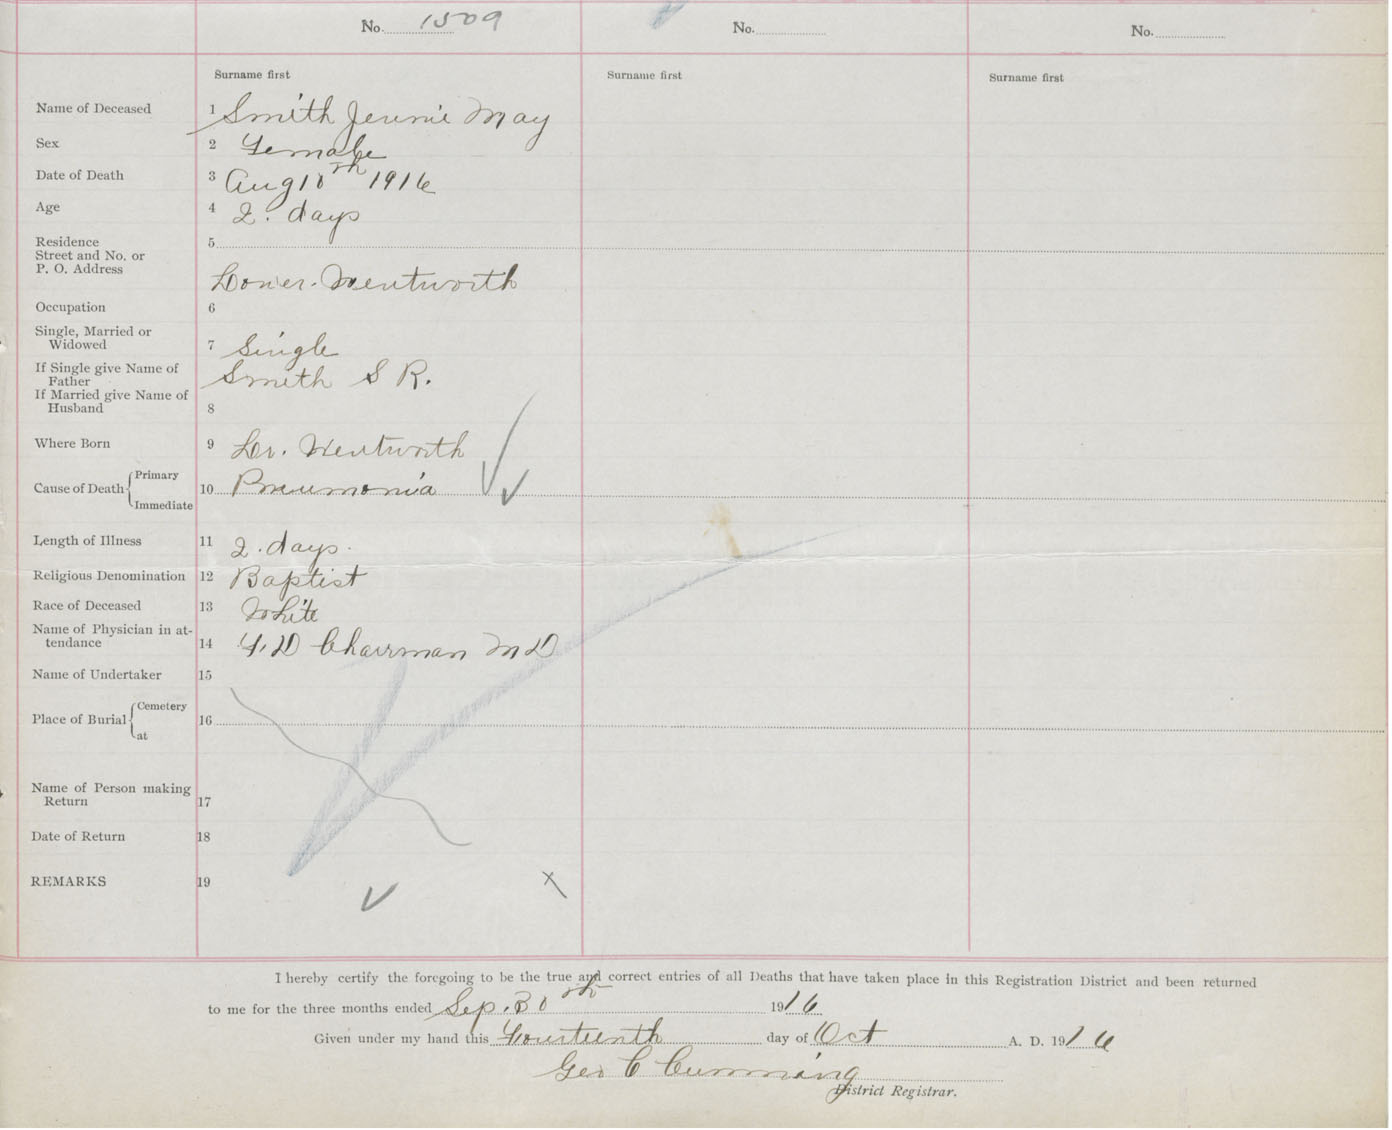 No. 1509 No. No.
Surname first Surname first Surname first
Name of Deceased 1 Smith Jennie May
Sex 2 Female
Date of Death 3 Aug 10th 1916
Age 4 2. days
Residence 5
Street and No. or
P. O. Address
Lower. Wentworth
Occupation 6
Single, Married or
Widowed 7 Single
If Single give Name of
Father Smith S R.
If Married give Name of
Husband 8
Where Born 9 Lr. Wentworth
Primary
Cause of Death 10 Pneumonia
Immediate
Length of Illness 11 2. days.
Religious Denomination 12 Baptist
Race of Deceased 13 White
Name of Physician in at-
tendance 14 D M D
Name of Undertaker 15
Cemetery
Place of Burial 16
at
Name of Person making
Return 17
Date of Return 18
REMARKS 19
I hereby certify the foregoing to be the true and correct entries of all Deaths that have taken place in this Registration District and been returned
to me for the three months ended Sep. 30th 1916
Given under my hand this Fourteenth day of Oct A. D. 1916
Geo C Cumming
District Registrar.